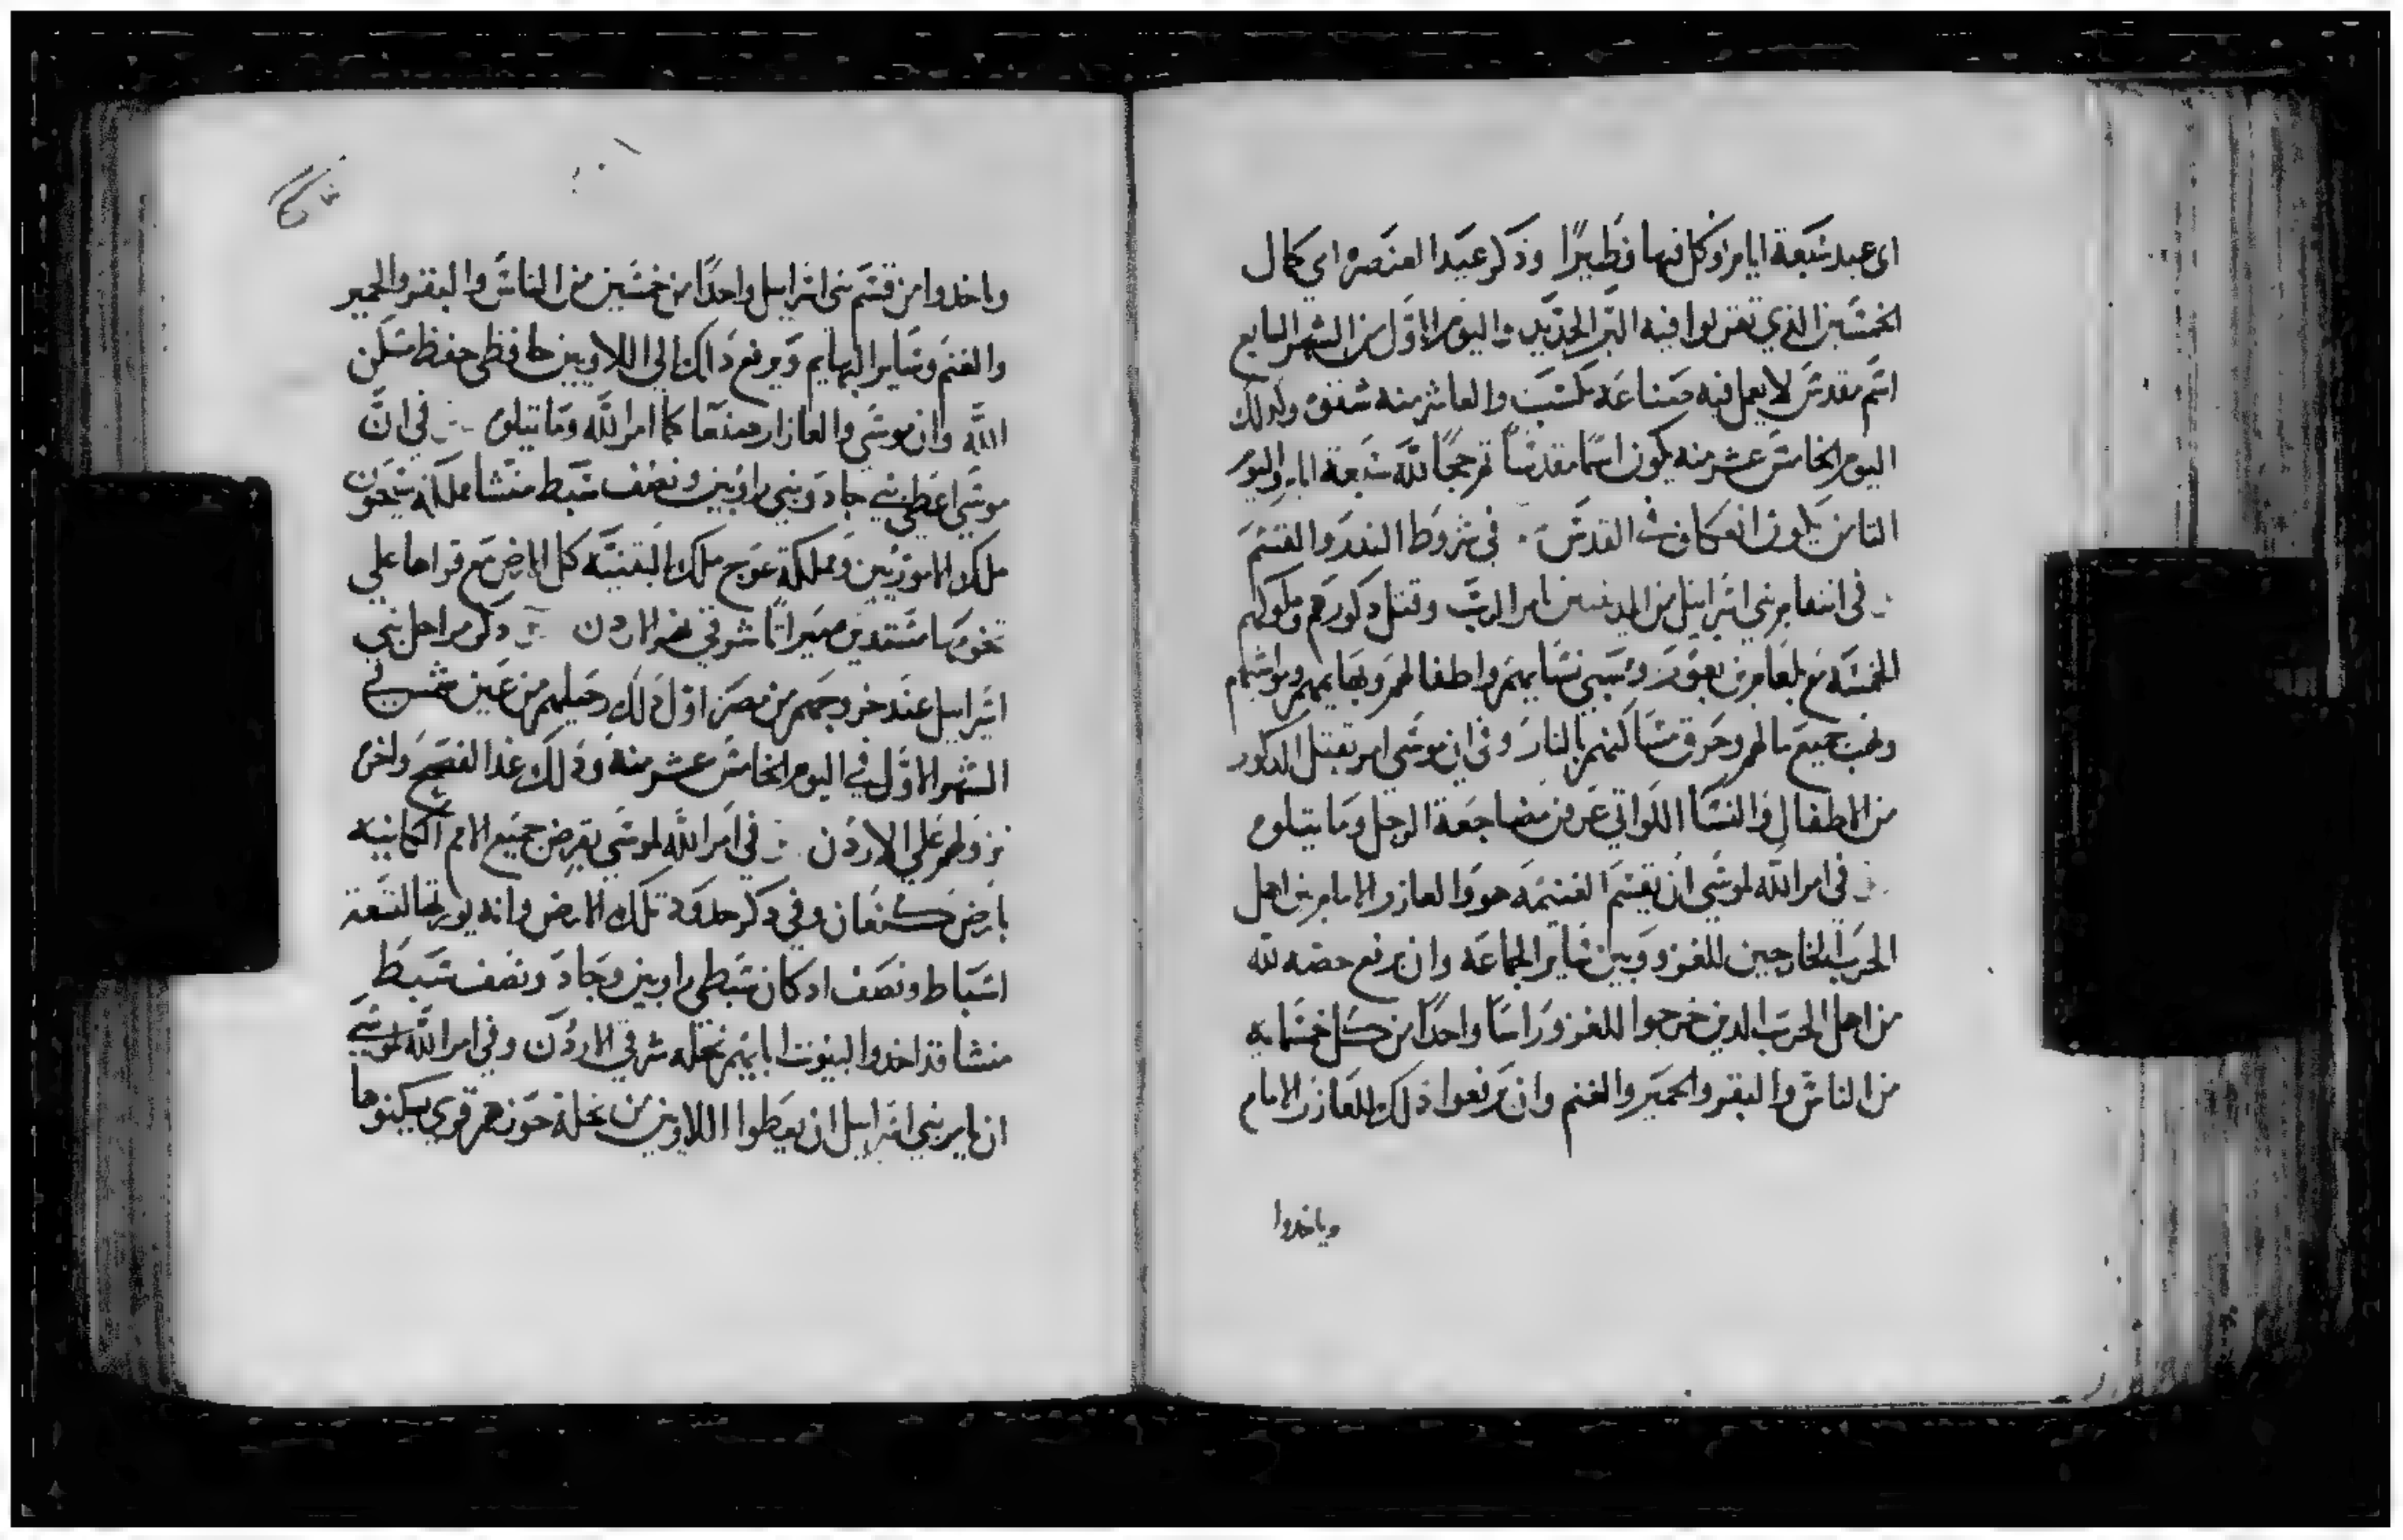 اى عيد سبعة ايام اوكل فيها فطيرًا وذكر عيد العنصره اى كمال
الخمسين الذي تقربوا فيه البر الجديد واليوم الاول من الشهر السابع
اسم مقدس لا يعمل فيه صناعة مكسب والعاشر منه شفق وكدلك
اليوم الخامس عشر منه يكون اسمًا مقدسًا تحججًا لله سبعة ايام واليوم
الثامن يكون انعكاف في القدس في شروط الندر والقسم
في انتقام بني اسراييل من المدينين امر الرب وقتل دكورهم وملوكهم
الخمسة مع بلعام بن بعور وسبي نسايهم واطفالهم وبهايمهم ومواشيهم
ونهب جميع مالهم وحرق مساكنهم بالنار وفي ان موسى امر بقتل الدكور
من الاطفال والنسا اللواتي عرفن مضاجعة الرجل وما يتلوه
في امر الله لموسى ان يقسم الغنيمة هو والعازر الامام بين اهل
الحرب الخارجين للغزو وبين ساير الجماعة وان يرفع حصه لله
من اهل الحرب الدين خرجوا للغزو راسًا واحدًا من كل خمسمايه
من الناس والبقر والحمير والغنم وان يرفعوا ذلك للعازر الامام
وياخدوا
وياخدوا من قسم بني اسراييل واحدًا من خمسين من الناس والبقر والحمير
والغنم وساير البهايم ويرفع ذالك الى اللاويين حافظي حفظ مسكن
الله وان موسى والعازار صنعا كما امر الله وما يتلوه في ان
موسى اعطى بني جاد وبني راوبين ونصف سبط منشا مملكة سيحون
ملك الاموريين ومملكة عوج ملك البثنية كل الارض مع قراها على
تخومها مستقدين ميراثًا شرقي نهر الاردن ذكر مراحل بني
اسراييل عند خروجهم من مصر اول ذلك رحيلهم من عين شمس في
الشهر الاول في اليوم الخامس عشر منه وذلك غد الفصح واخره
نزولهم على الاردن في امر الله لموسى بقرض جميع الامم الكاينيه
بارض كنعان وفي ذكر حدود تلك الارض وانه يورثها لتسعة
اسباط ونصف اد كان سبطي راوبين وجاد ونصف سبط
منشا قد اخدوا لبيوت ابايهم نحله شرقي الاردن وفي امر الله لموسى
ان يامر بني اسراييل ان يعطوا اللاويين من نحلة حوزهم قرى يسكنوها